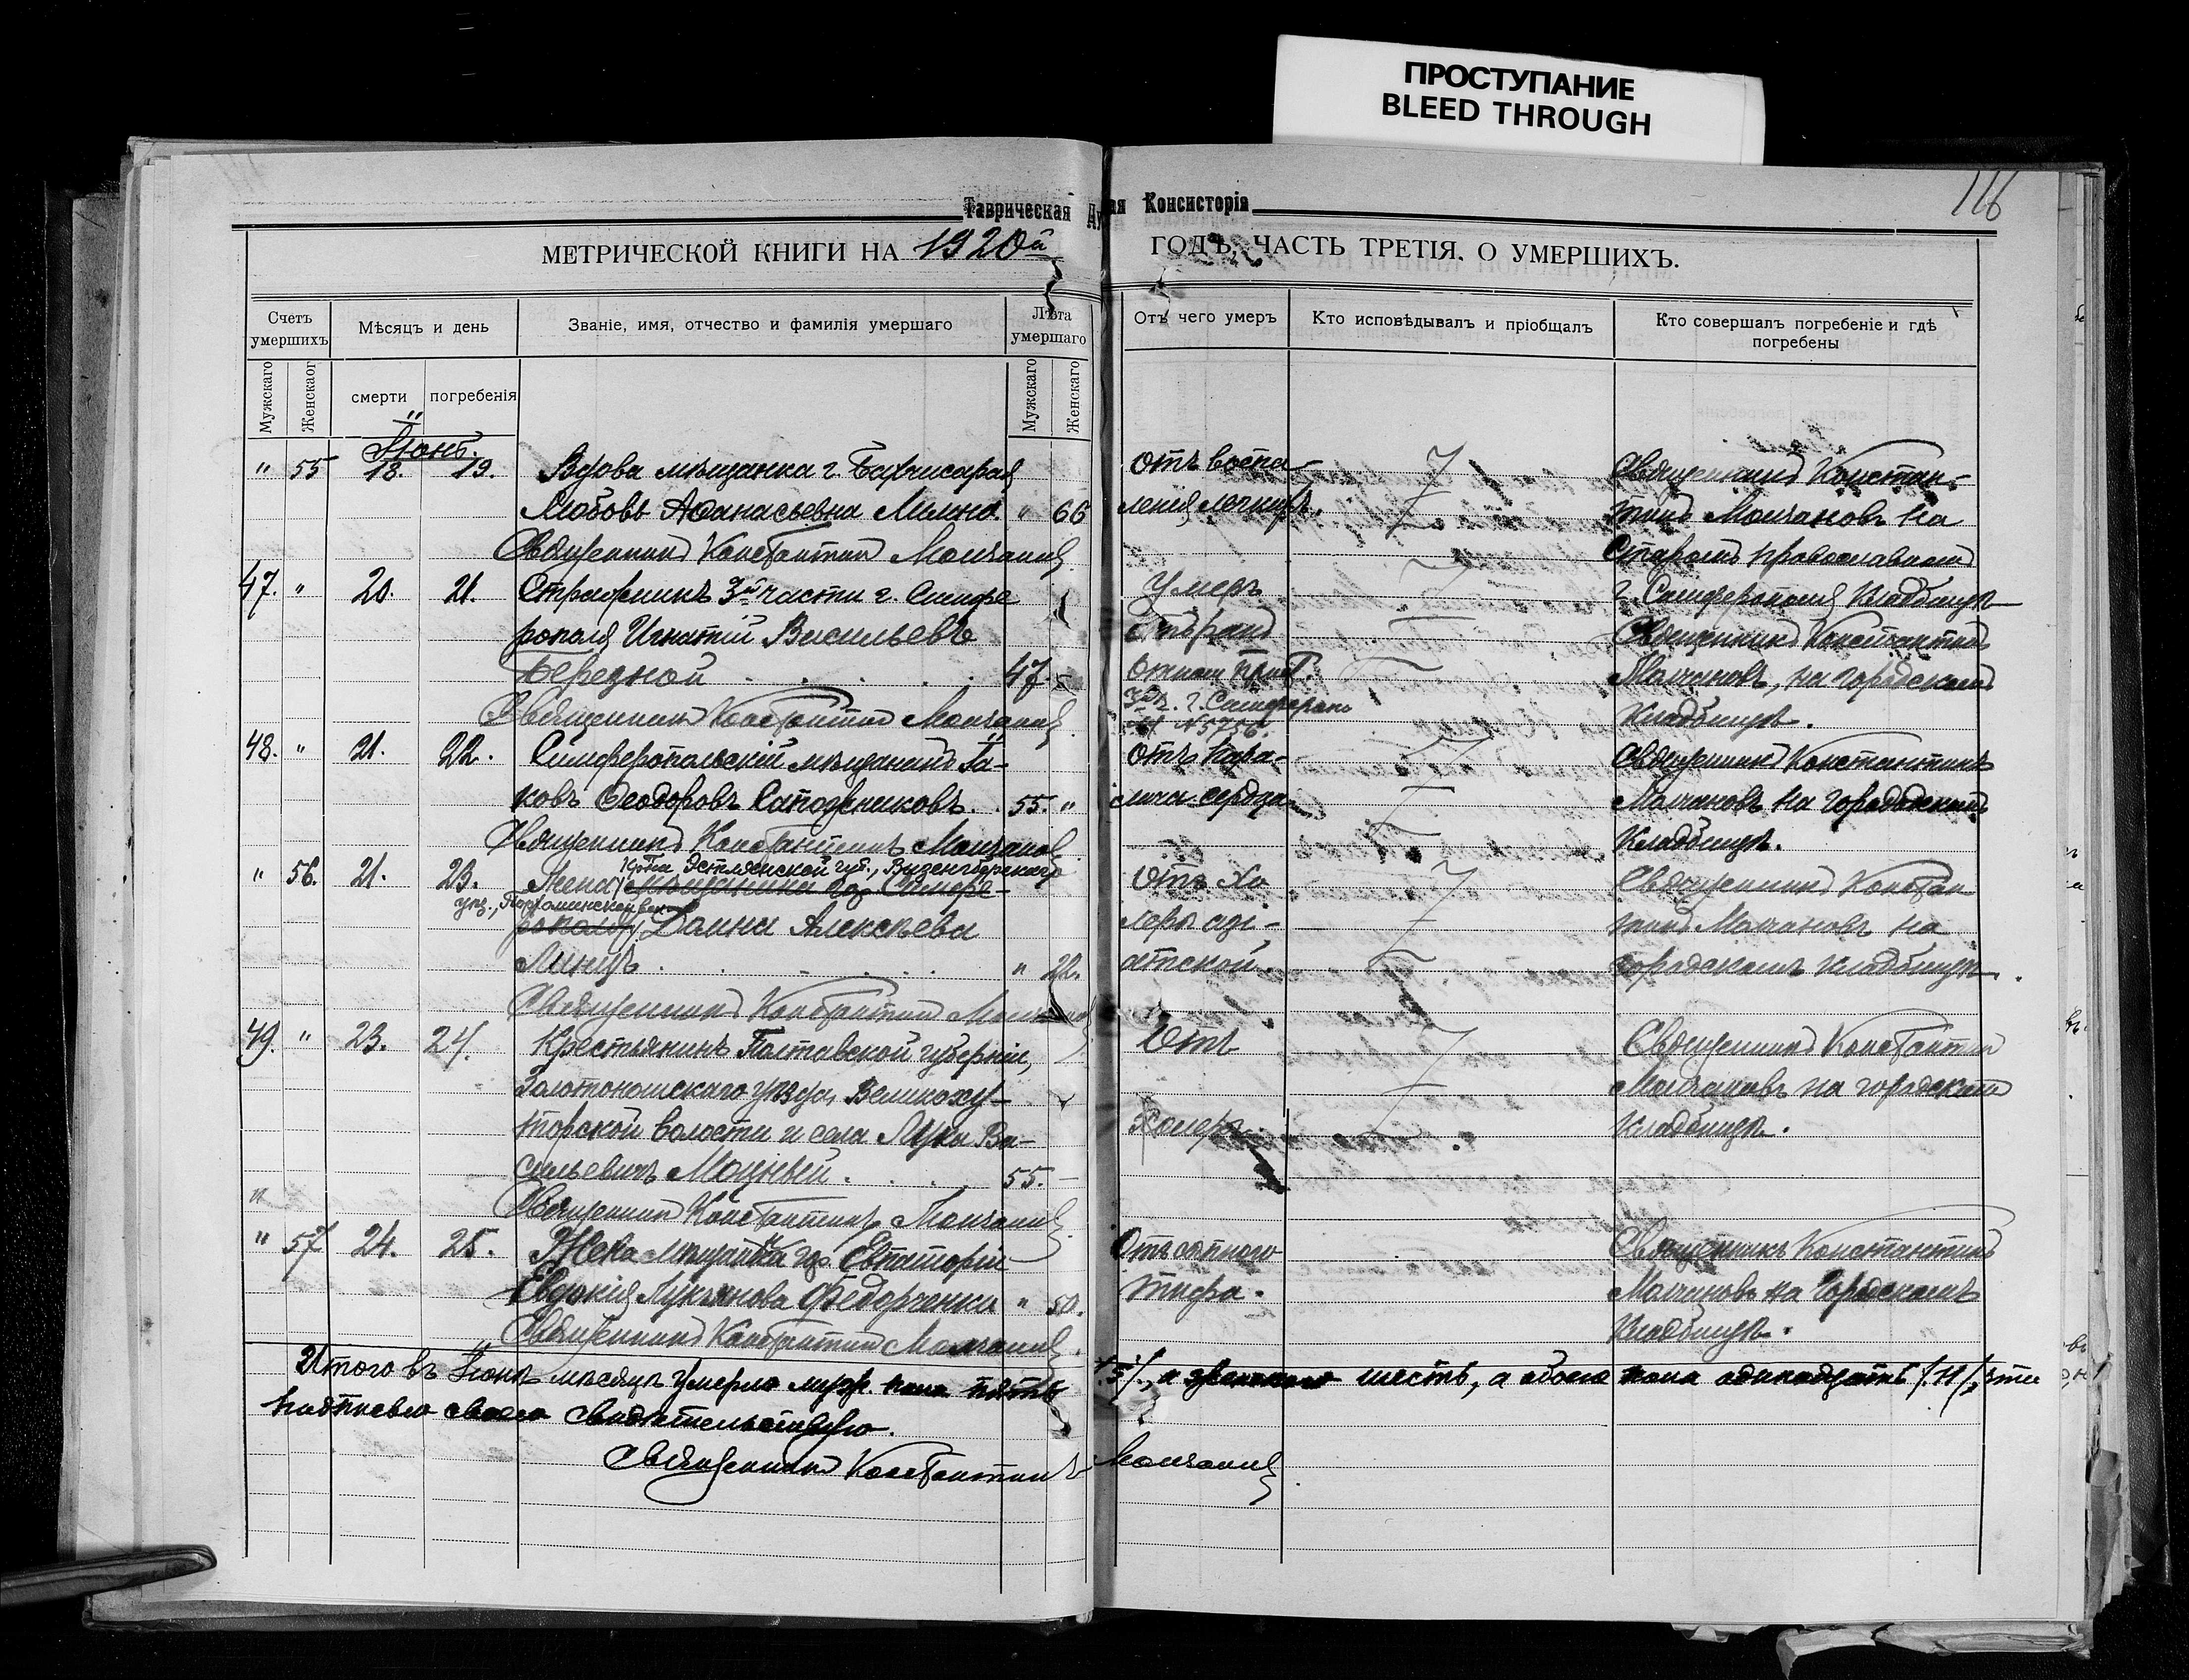 ПРОСТУПАНИЕ
BLEED THROUGH
116
Таврическая Ду ая Консисторія
МЕТРИЧЕСКОЙ КНИГИ НА 1920й ГОДЪ, ЧАСТЬ ТРЕТІЯ, О УМЕРШИХЪ.
Счетъ умершихъ
Мѣсяцъ и день
Званіе, имя, отчество и фамилія умершаго
Лѣта умершаго
Отъ чего умеръ
Кто исповѣдывалъ и пріобщалъ
Кто совершалъ погребеніе и гдѣ
погребены
Мужскаго
Женскаог
смерти
погребенія
Мужскаго
Женскаго
Іюнь.
" 55 18. 19. Вдова мѣщанка г. Бахчисарая
Любовь Аѳанасьевна " 66
Священникъ Константинъ Молчановъ
Отъ воспа-
ленія легкихъ.
Священникъ Констан-
тинъ Молчановъ на
Старомъ православномъ
г. Симферополя Кладбищѣ
47. " 20. 21. Стражникъ 3й части г. Симфе
рополя Игнатій Васильевъ
Бередной . . . . . 47.
Священникъ Константинъ Молчановъ
Умеръ
3й ч. г. Симфероп
№ 5756.
Священникъ Константинъ
Молчановъ, на городскомъ
Кладбищѣ.
48. " 21. 22. Симферопольскій мѣщанинъ Іа-
ковъ Ѳеодоровъ Сапожниковъ . 55. "
Священникъ Константинъ Молчановъ
Отъ пара-
лича сердца
Священникъ Константинъ
Молчановъ на городскомъ
Кладбищѣ.
" 56. 21. 23. Жена кр-на Эстлянской губ., Везенбергскаго
мѣщанина гор. Симфе-
уѣз.,
рополя Алексѣева
. . . . . . " 22.
Священникъ Константинъ Молчановъ
Отъ Хо
леры азі-
атской.
Священникъ Констан
тинъ Молчановъ на
городскомъ кладбищѣ.
49. " 23. 24. Крестьянинъ Полтавской губерніи,
Золотоношскаго уѣзда, Великоху-
торской волости и села Лука Ва-
сильевичъ Моцный . . . . 55. –
Священникъ Константинъ Молчановъ
Отъ
Холеры.
Священникъ Константинъ
Молчановъ на городскомъ
Кладбищѣ.
" 57 24. 25. Жена мѣщанина гор. Евпаторіи
Евдокія Лукьянова Федорченко " 50.
Священникъ Константинъ Молчановъ.
Отъ сыпного
тифа.
Священникъ Константинъ
Молчановъ на Городскомъ
Кладбищѣ.
Итого въ Іюнѣ мѣсяцѣ умерло муж. пола пять /.5/., а женскаго шесть, а обоего пола одинадцать /.11/, что
подписью своею свидѣтельствую.
Священникъ Константинъ Молчановъ.